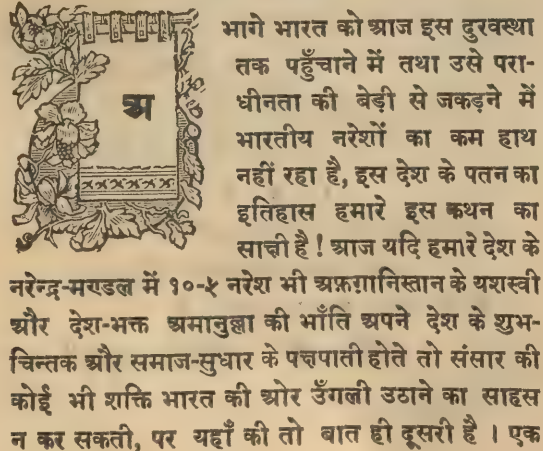 अभागे भारत को आज इस दुरवस्था
तक पहुँचाने में तथा उसे परा-
धीनता की बेड़ी से जकड़ने में
भारतीय नरेशों का कम हाथ
नहीं रहा है, इस देश के पतन का
इतिहास हमारे इस कथन का
साक्षी है ! आज यदि हमारे देश के
नरेन्द्र-मण्डल में १०-५ नरेश भी अफ़ग़ानिस्तान के यशस्वी
और देश-भक्त अमानुल्ला की भाँति अपने देश के शुभ-
चिन्तक और समाज-सुधार के पक्षपाती होते तो संसार की
कोई भी शक्ति भारत की ओर उँगली उठाने का साहस
न कर सकती, पर यहाँ की तो बात ही दूसरी है । एक